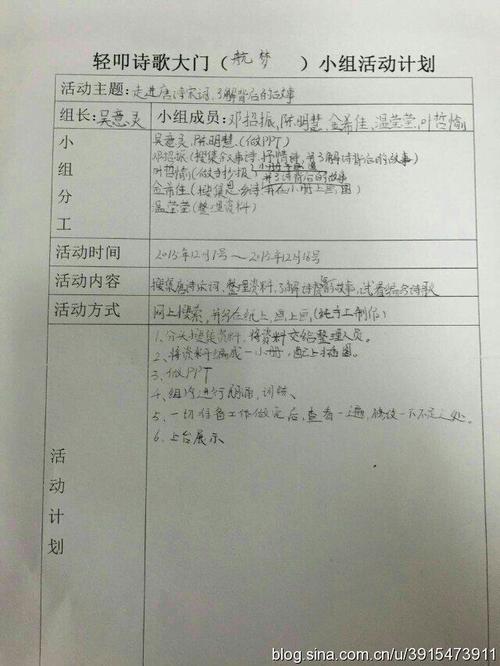 轻叩诗歌大门（航梦）小组活动计划
活动主题：走进唐诗宋词，了解背后的故事
组长：吴意灵 小组成员：邓招振，陈明慧，金希佳，温莹莹，叶哲愉
小组分工
吴意灵，陈明慧（做PPT）
邓招振（搜集叙事诗，抒情诗，并了解诗背后的故事）
叶哲愉（做手抄报）
金希佳（搜集 乡诗 并在小册上画图）
温莹莹（整理资料）
活动时间 2015年12月1号～2015年12月16号
活动内容 搜集唐诗宋词，整理资料，了解诗背后故事，试着编写诗歌
活动方式 网上搜索，并写在纸上，画上画（纯手工制作）
活动计划
1、分头搜集资料，将资料交给整理人员。
2、将资料编成一小册，配上插图。
3、做PPT
4、组内进行 训练、
5、一切准备工作做完后，查看一遍，修改一下不足之处。
6、上台展示
blog.sina.com.cn/u/3915473911